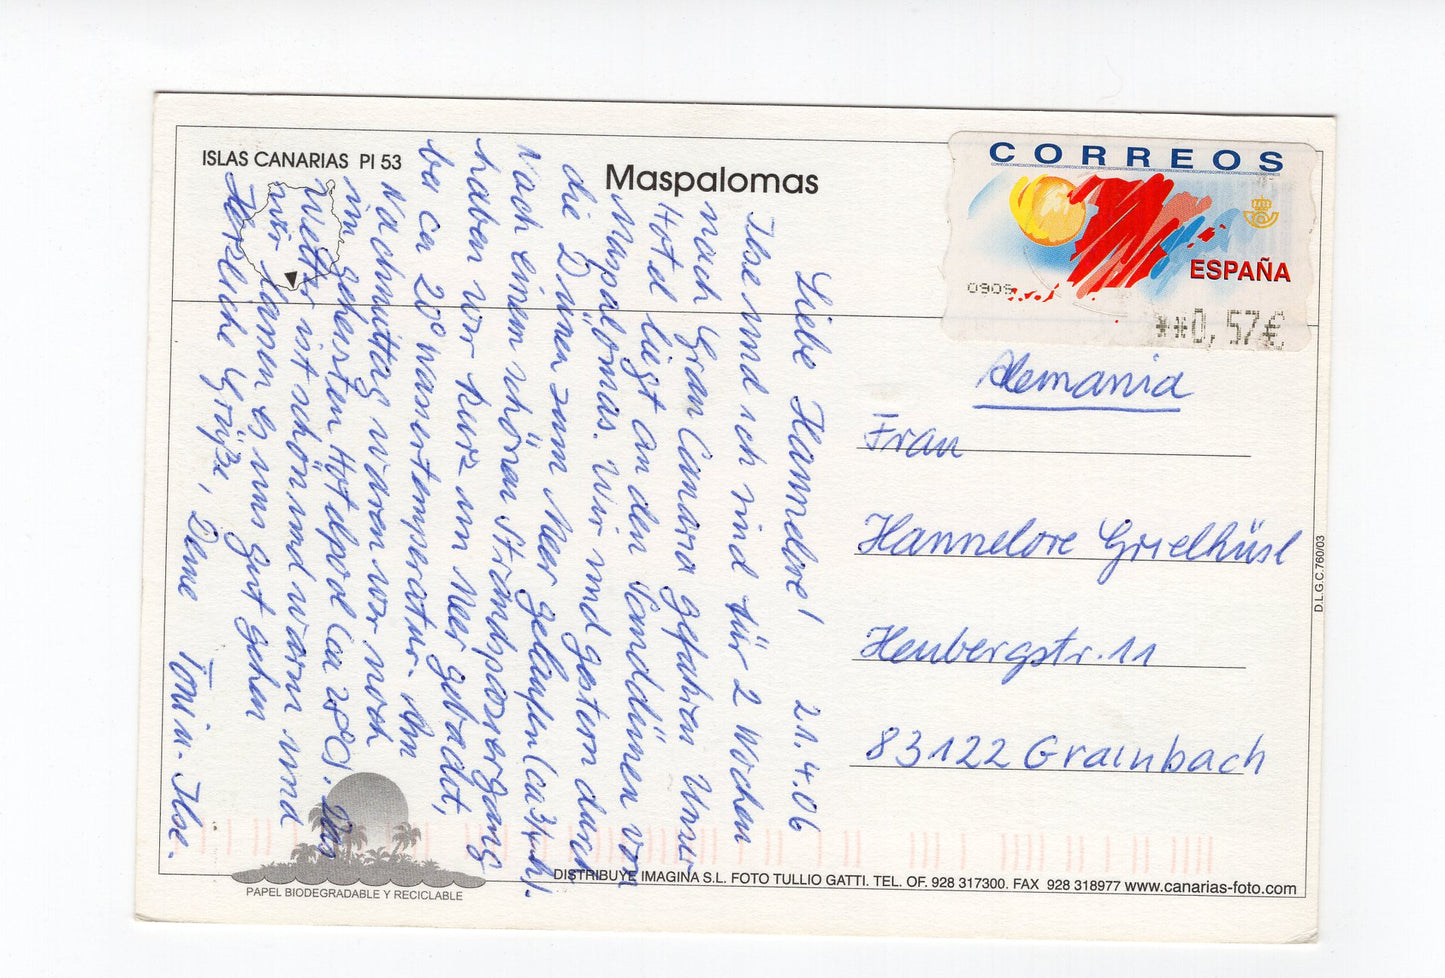 ISLAS CANARIAS PI 53
Maspalomas
CORREOS
ESPAÑA
0909
**0,57€
Liebe Hannelore! 21.4.06
Ilse und ich sind für 2 Wochen
nach Gran Canaria gefahren Unser
Hotel liegt an den Sanddünen von
Maspalomas. Wir sind gestern durch
die Dünen zum Meer gelaufen (ca 3/4 h).
Nach einem schönen Strandspaziergang
haben wir kurz im Meer gebadet,
bei ca 20° Wassertemperatur. Am
Nachmittag waren wir noch
im geheizten Hotelpool (ca 28°). Das
Wetter ist schön und warm und
wir lassen es uns gut gehen
Herzliche Grüße, Deine Toni u. Ilse.
Alemania
Frau
Hannelore Grielhüsl
Heubergstr. 11
83122 Grainbach
D.L.G.C. 760/03
PAPEL BIODEGRADABLE Y RECICLABLE
DISTRIBUYE IMAGINA S.L. FOTO TULLIO GATTI. TEL. OF. 928 317300. FAX 928 318977 www.canarias-foto.com